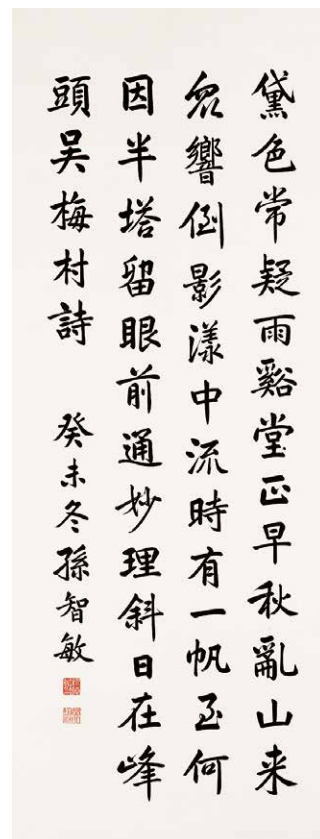 黛色常疑雨谿堂正早秋亂山来
众響倒影漾中流時有一帆至何
因半塔留眼前通妙理斜日在峰
頭吴梅村詩
癸未冬孫智敏